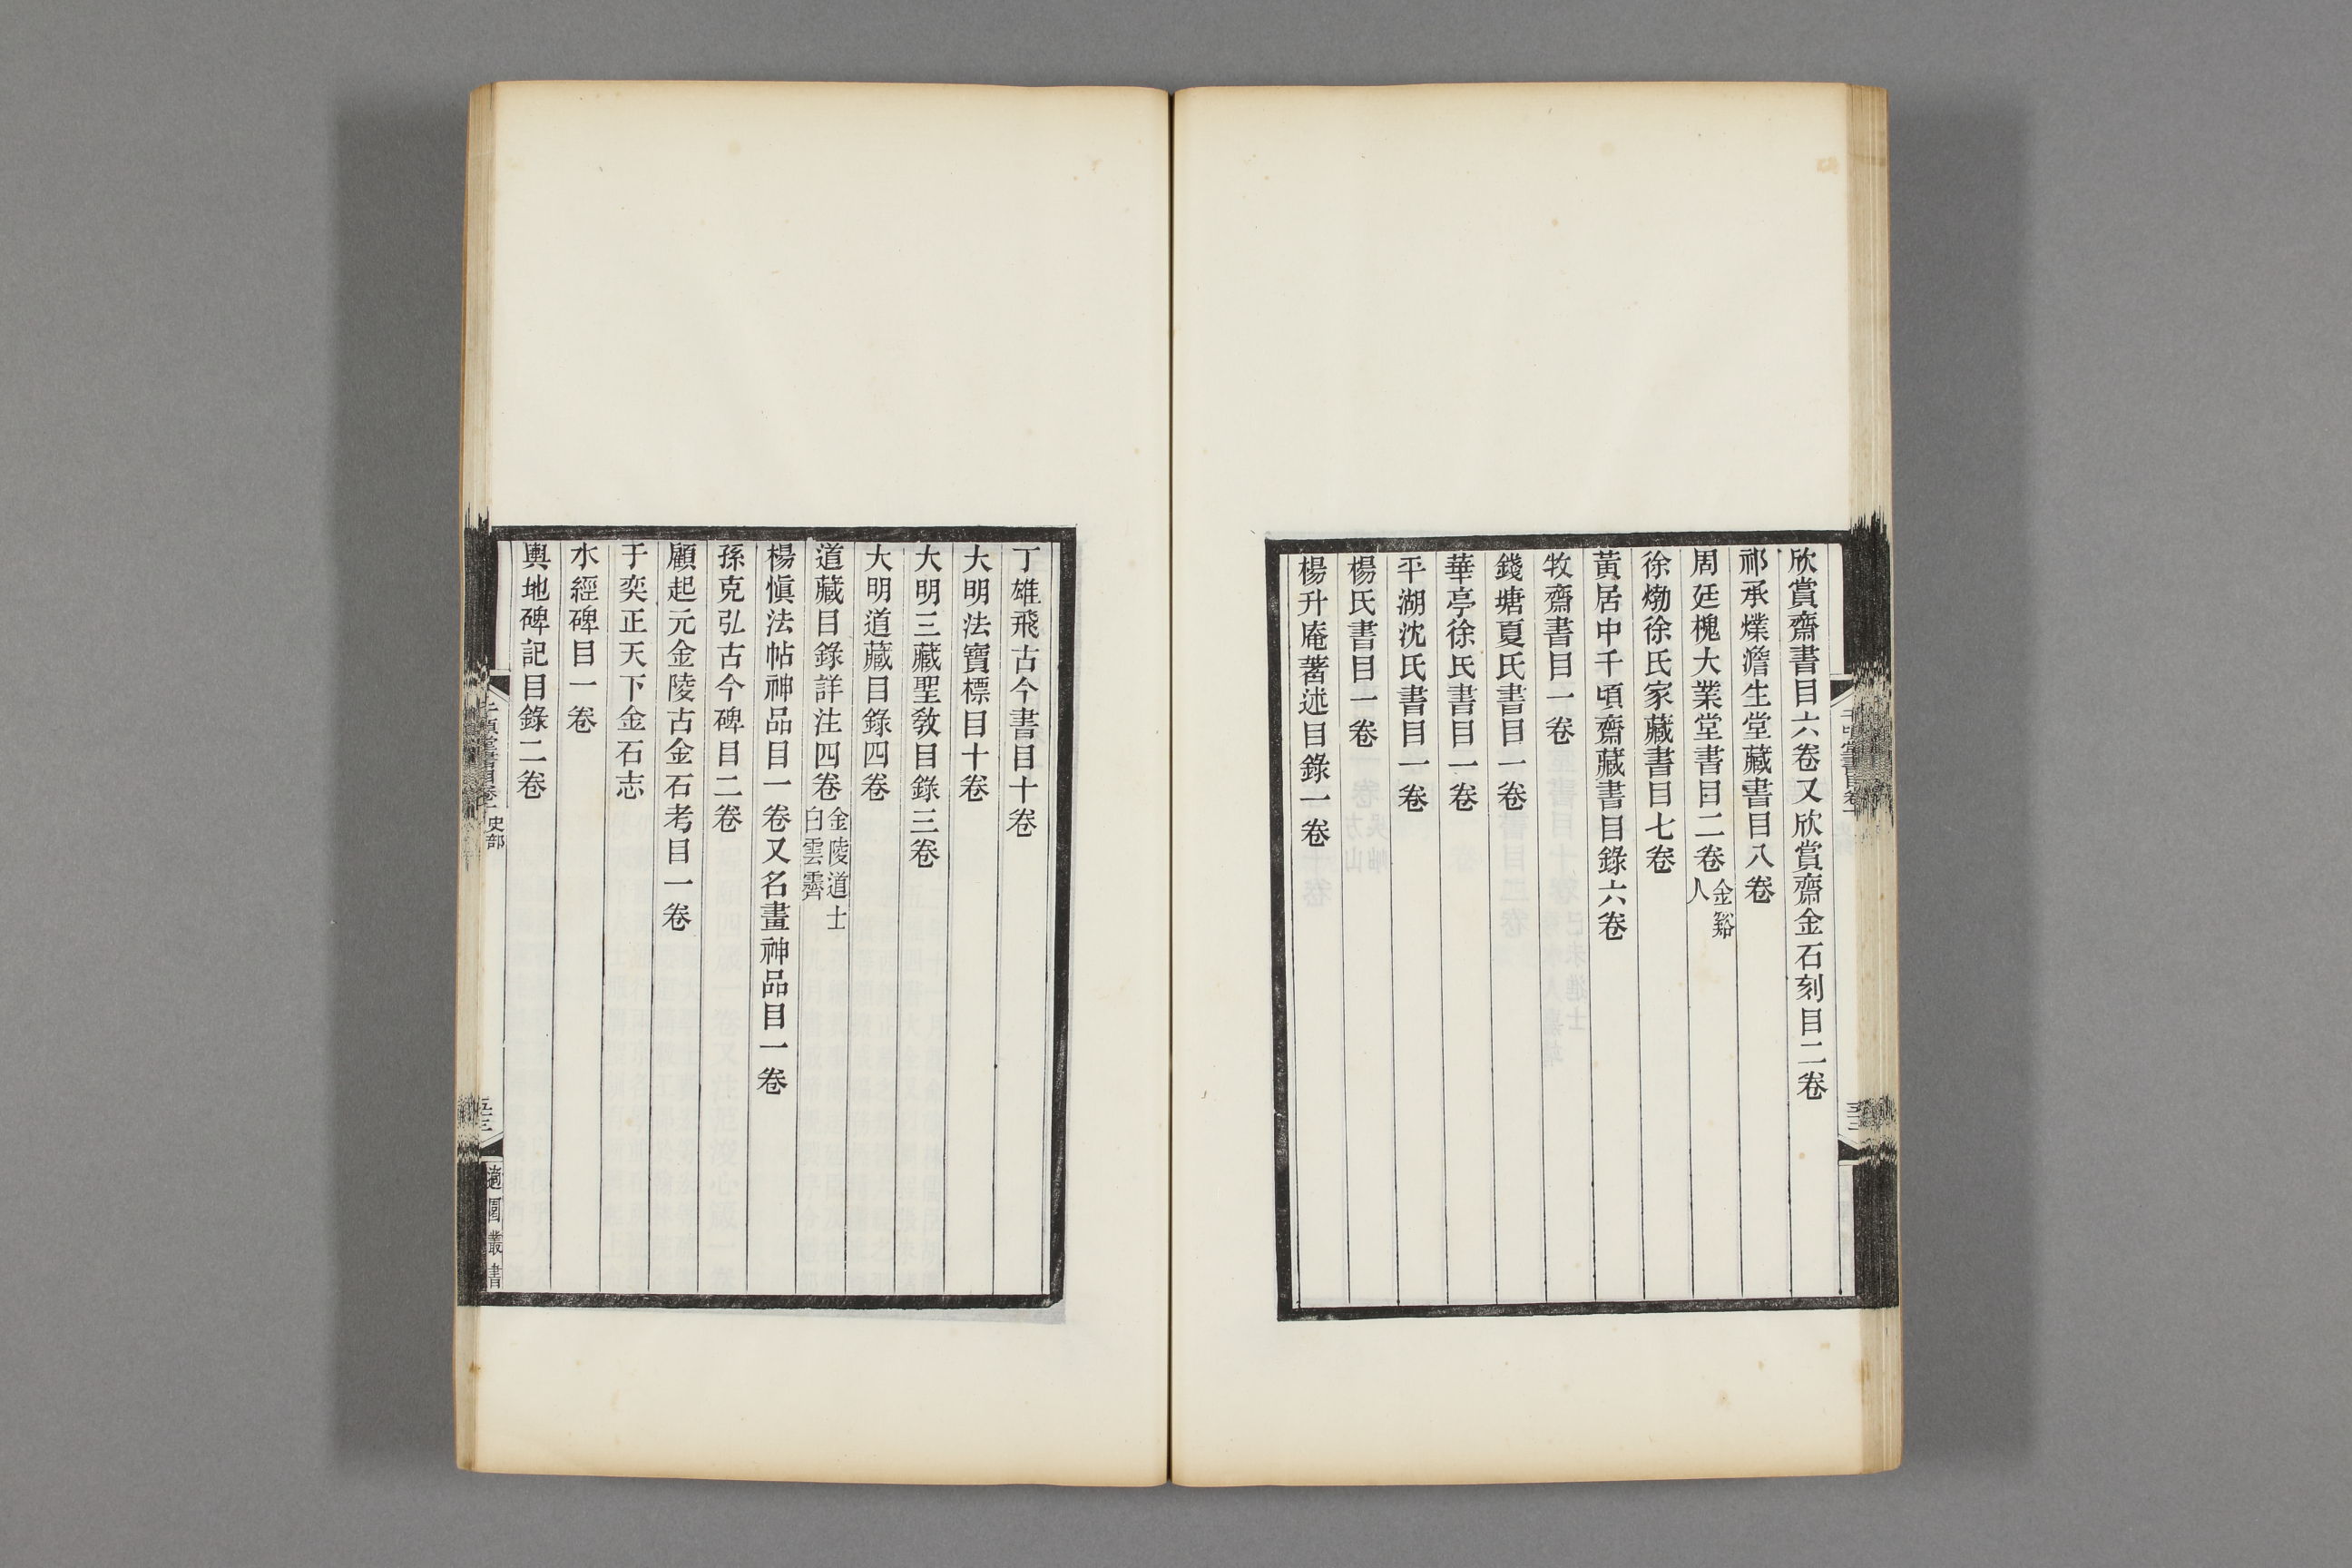 欣賞齋書目六卷又欣賞齋金石刻目二卷
祁承㸁澹生堂藏書目八卷
周廷槐大業堂書目二卷金谿人
徐𤊹徐氏家藏書目七卷
黃居中千頃齋藏書目錄六卷
牧齋書目一卷
錢塘夏氏書目一卷
華亭徐氏書目一卷
平湖沈氏書目一卷
楊氏書目一卷
楊升庵著述目錄一卷
丁雄飛古今書目十卷
大明法寶標目十卷
大明三藏聖教目錄三卷
大明道藏目錄四卷
道藏目錄詳注四卷金陵道士白雲霽
楊愼法帖神品目一卷又名畫神品目一卷
孫克弘古今碑目二卷
顧起元金陵古金石考目一卷
于奕正天下金石志
水經碑目一卷
輿地碑記目錄二卷
史部
適園叢書